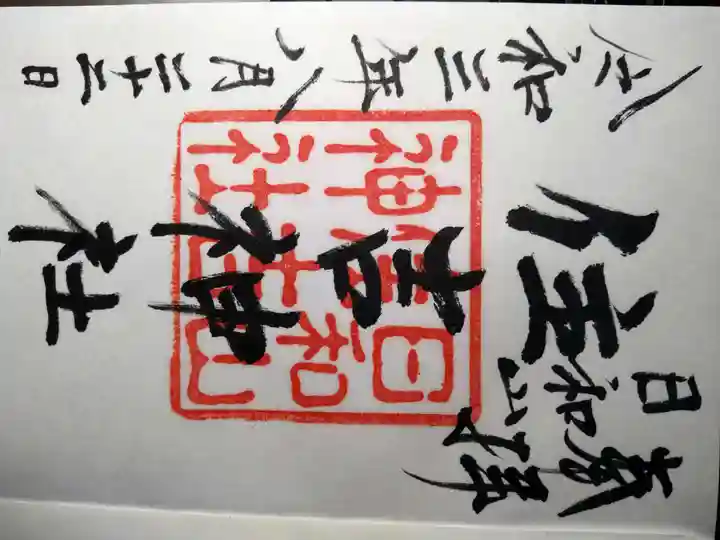 奉拝
日和山
住吉神社
令和三年八月二十二日
日和山
住吉
神社